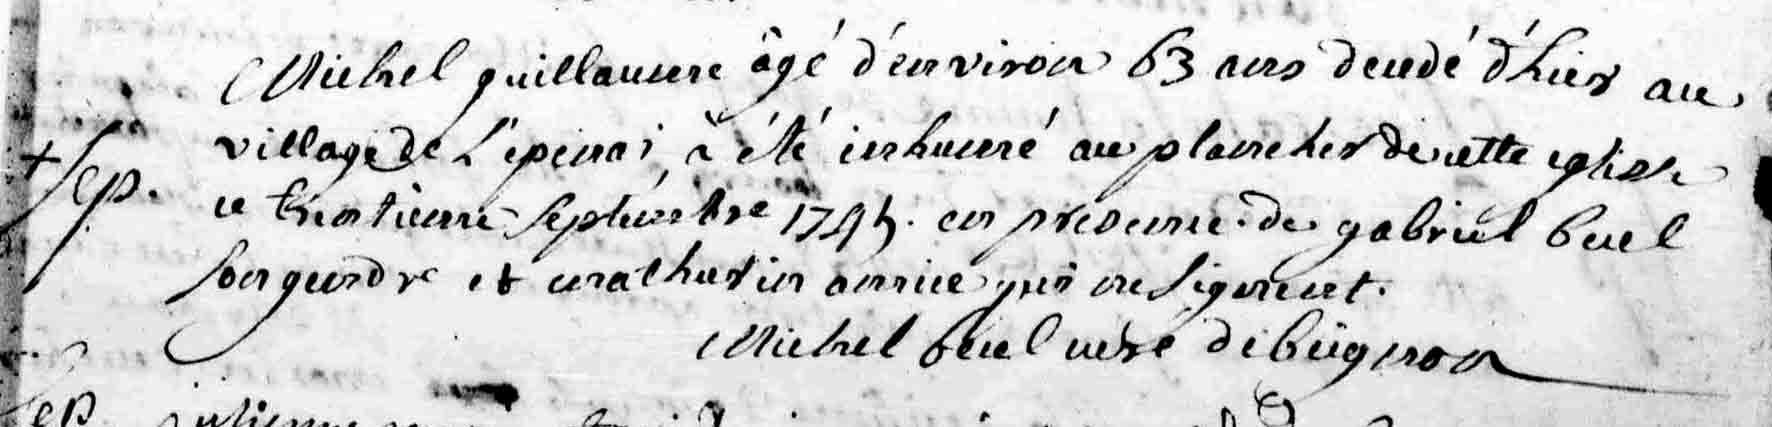 Michel guillaume âgé d'environ 63 ans decedé d'hier au
village de L'épinai à été inhumé au plancher de cette eglise
+ Sep.
ce trentieme Septembre 1745. en presence de gabriel buel
son gendre et mathurin amice qui ne signent.
Michel buel curé de bügnon
Sep